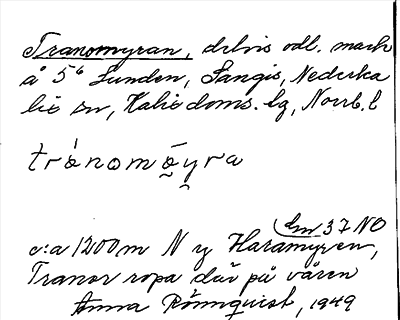 Tranomyran, delvis odl. mark
å 5⁶ Lunden, Sangis, Nederka
lix sn, Kalix doms. lg, Norrb. l
trånomy̌ra
37 NO
c:a 1200 m N ɣ Haramyren,
Tranor ropa där på våren
Anna Rönnquist, 1949